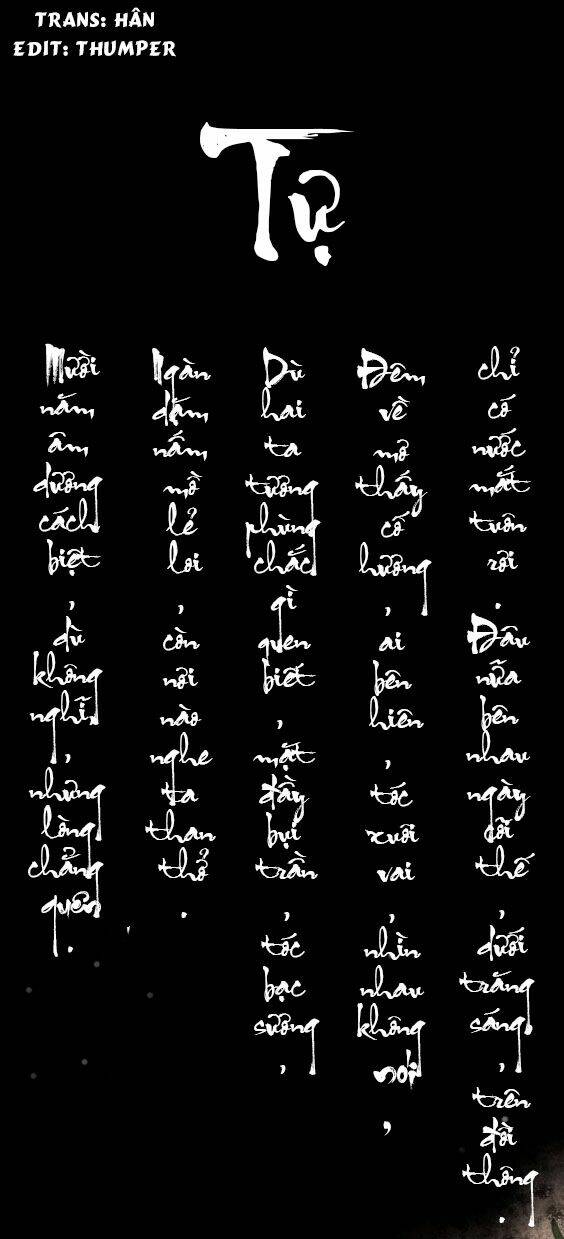 TRANS: HÂN
EDIT: THUMPER
Tự
Mười năm âm dương cách biệt, dù không nghĩ, nhưng lòng chẳng quên.
Ngàn dặm nấm mồ lẻ loi, còn nơi nào nghe ta than thở.
Dù hai ta tương phùng chắc gì quen biết, mặt đầy bụi trần, tóc bạc sương,
Đêm về mơ thấy cố hương, ai bên hiên, tóc xuôi vai, nhìn nhau không nói,
chỉ có nước mắt tuôn rơi. Đâu nữa bên nhau ngày cõi thế, dưới trăng sáng, trên đồi thông.